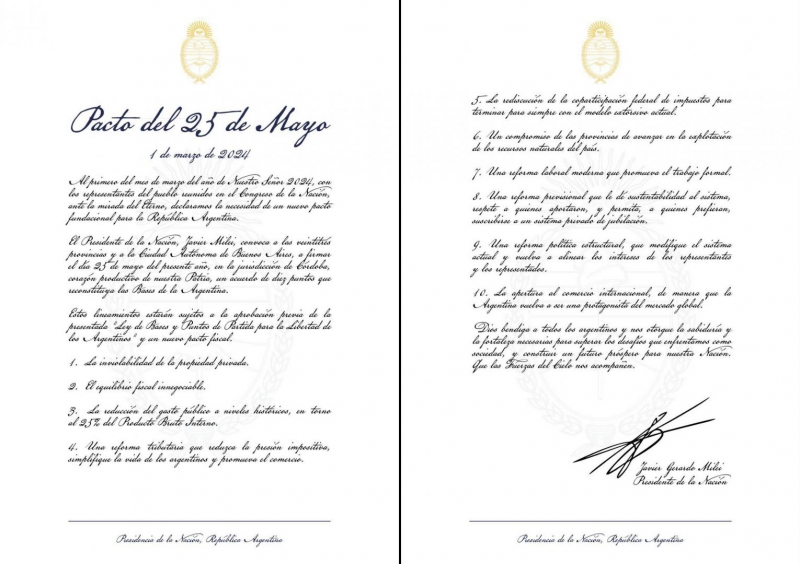 Pacto del 25 de Mayo
1 de marzo de 2024
Al primero del mes de marzo del año de Nuestro Señor 2024, con
los representantes del pueblo reunidos en el Congreso de la Nación,
ante la mirada del Eterno, declaramos la necesidad de un nuevo pacto
fundacional para la República Argentina.
El Presidente de la Nación, Javier Milei, convoca a las veintitrés
provincias y a la Ciudad Autónoma de Buenos Aires, a firmar
el día 25 de mayo del presente año, en la jurisdicción de Córdoba,
corazón productivo de nuestra Patria, un acuerdo de diez puntos que
reconstituya las Bases de la Argentina.
Estos lineamientos estarán sujetos a la aprobación previa de la
presentada "Ley de Bases y Puntos de Partida para la Libertad de
los Argentinos" y un nuevo pacto fiscal.
1. La inviolabilidad de la propiedad privada.
2. El equilibrio fiscal innegociable.
3. La reducción del gasto público a niveles históricos, en torno
al 25% del Producto Bruto Interno.
4. Una reforma tributaria que reduzca la presión impositiva,
simplifique la vida de los argentinos y promueva el comercio.
Presidencia de la Nación, República Argentina
5. La rediscusión de la coparticipación federal de impuestos para
terminar para siempre con el modelo extorsivo actual.
6. Un compromiso de las provincias de avanzar en la explotación
de los recursos naturales del país.
7. Una reforma laboral moderna que promueva el trabajo formal.
8. Una reforma previsional que le dé sustentabilidad al sistema,
respete a quienes aportaron, y permita, a quienes prefieran,
suscribirse a un sistema privado de jubilación.
9. Una reforma política estructural, que modifique el sistema
actual y vuelva a alinear los intereses de los representantes
y los representados.
10. La apertura al comercio internacional, de manera que la
Argentina vuelva a ser una protagonista del mercado global.
Dios bendiga a todos los argentinos y nos otorgue la sabiduría y
la fortaleza necesarias para superar los desafíos que enfrentamos como
sociedad, y construir un futuro próspero para nuestra Nación.
Que las Fuerzas del Cielo nos acompañen.
Javier Gerardo Milei
Presidente de la Nación
Presidencia de la Nación, República Argentina